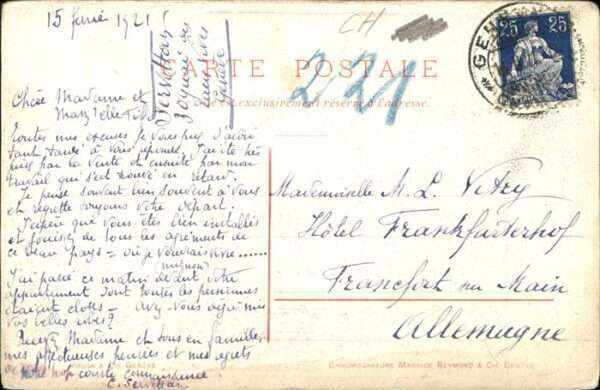 15 février 1921
CH
CARTE POSTALE
exclusivement réservé à l'adresse.
25 25
GEN
221
Chère Madame et
Mad'elle
Toutes mes excuses je vous prie d'avoir
tant tardé à vous répondre, j'ai été très
prise par la vente et ensuite par mon
travail qui s'est trouvé en retard.
Je pense souvent bien souvent à vous
et regrette toujours votre départ.
J'espère que vous êtes bien installés
et jouissez de tous les agréments de
ce beau pays - où je voudrais vivre......
(mignon)
J'ai passé ce matin devant votre
appartement dont toutes les persiennes
étaient closes - avez-vous
vos belles
Recevez Madame et tous en famille
mes affectueuses pensées et mes regrets
de notre trop courte connaissance.
E. Servettaz
Servettaz
Mademoiselle M. L. Vitry
Hôtel Frankfurterhof
Francfort sur Main
Allemagne
CHROMOGRAVURE MAURICE REYMOND & CIE GENÈVE